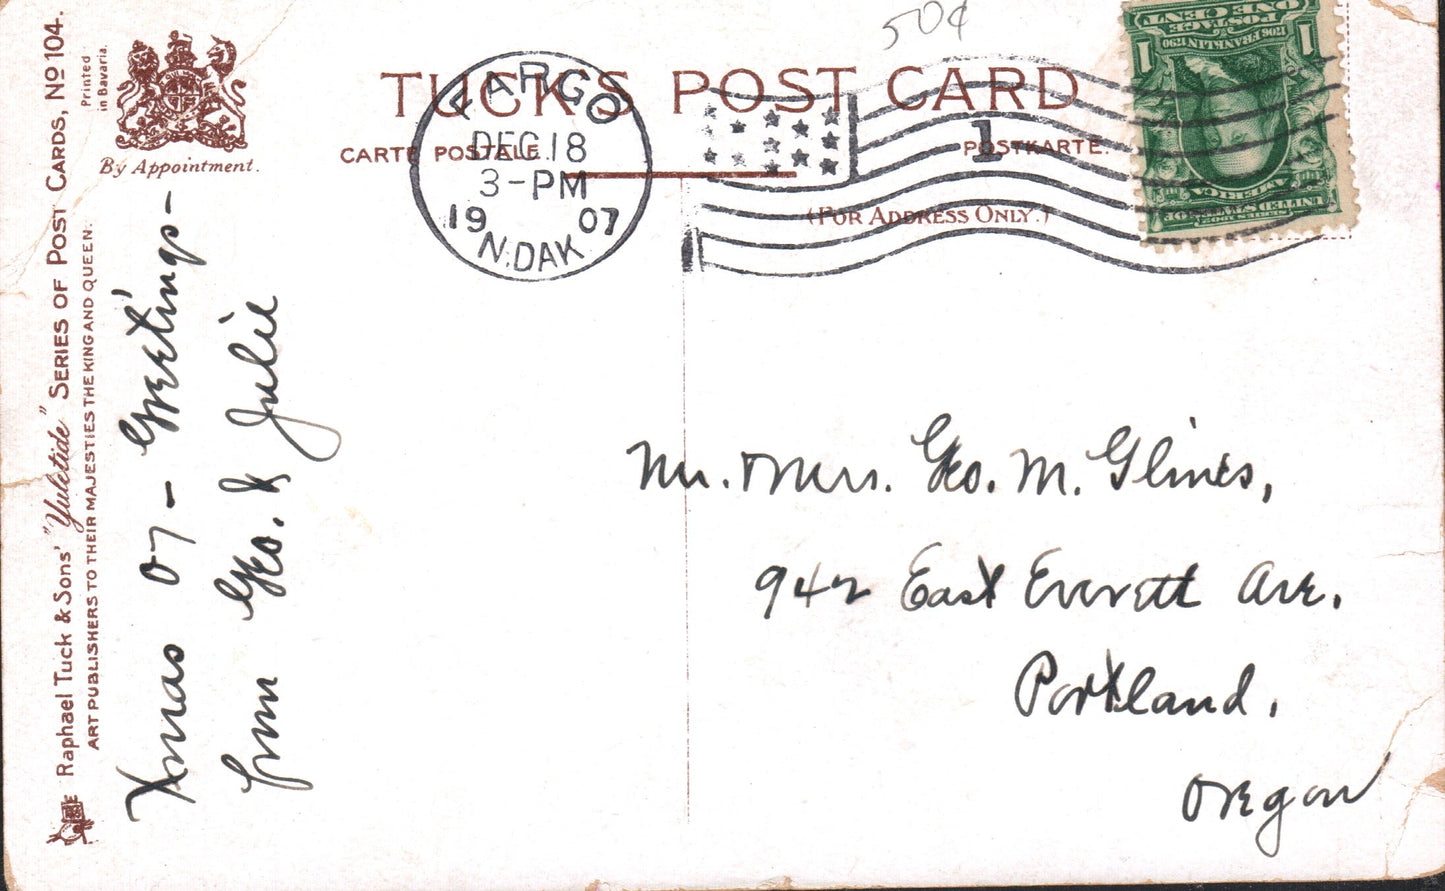 50¢
TUCK'S POST CARD
CARTE POSTALE.
POSTKARTE.
(FOR ADDRESS ONLY.)
FARGO
DEC 18
3-PM
19 07
N.DAK
1
UNITED STATES OF
AMERICA
1706 FRANKLIN 1790
POSTAGE
ONE CENT
1 1
Printed
in Bavaria.
By Appointment.
Raphael Tuck & Sons' "Yuletide" Series of Post Cards, No 104.
Art Publishers to Their Majesties the King and Queen.
Xmas 07 - Greetings -
from Geo. & Julie
Mr. & Mrs. Geo. M. Glines,
942 East Everett Ave.
Portland,
Oregon